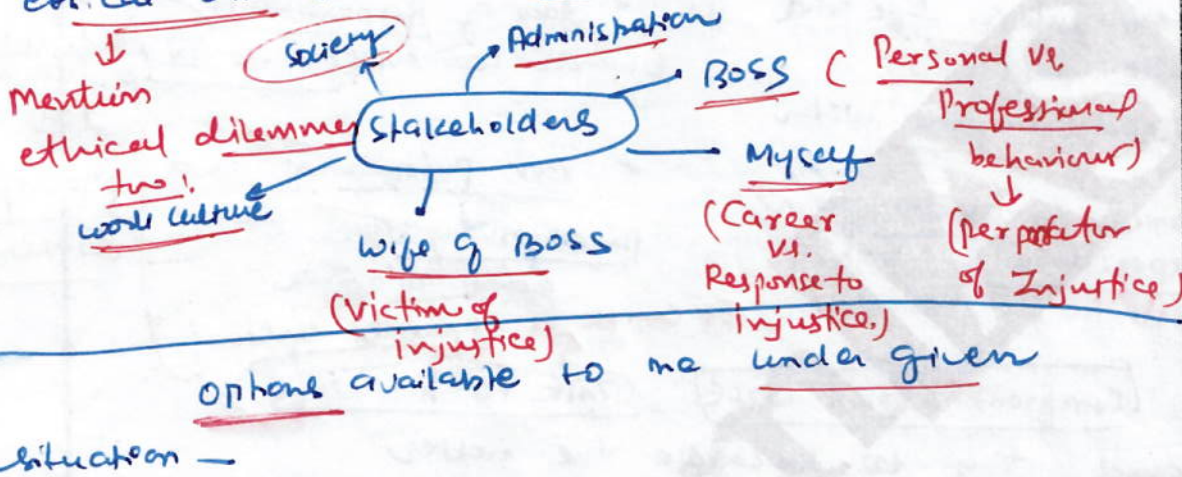 society
Administration
Mention
ethical dilemmes
too!
stakeholders
BOSS ( Personal vs.
Professional
behaviour)
(perpetrator
of Injustice)
Myself
(Career
vs.
Response to
injustice.)
work culture
wife of BOSS
(victim of
injustice)
options available to me under given
situation —